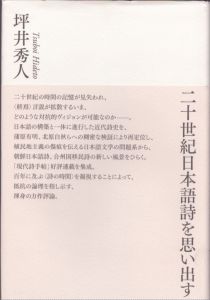 二十世紀日本語詩を思い出す
坪井秀人
Tsuboi Hideto
二十世紀の時間の記憶が見失われ、
〈終焉〉言説が拡散するいま、
どのような対抗的ヴィジョンが可能なのか――。
日本語の構築と一体に進行した近代詩史を、
蒲原有明、北原白秋らへの精密な検証により再定位し、
植民地主義の傷痕を伝える日本語文学の問題系から、
朝鮮日本語詩、移民詩の新しい風景をひらく。
『現代詩手帖』好評連載を集成。
百年に及ぶ〈詩の時間〉をすることによって、
抵抗の論理を指し示す、
渾身の力作評論。